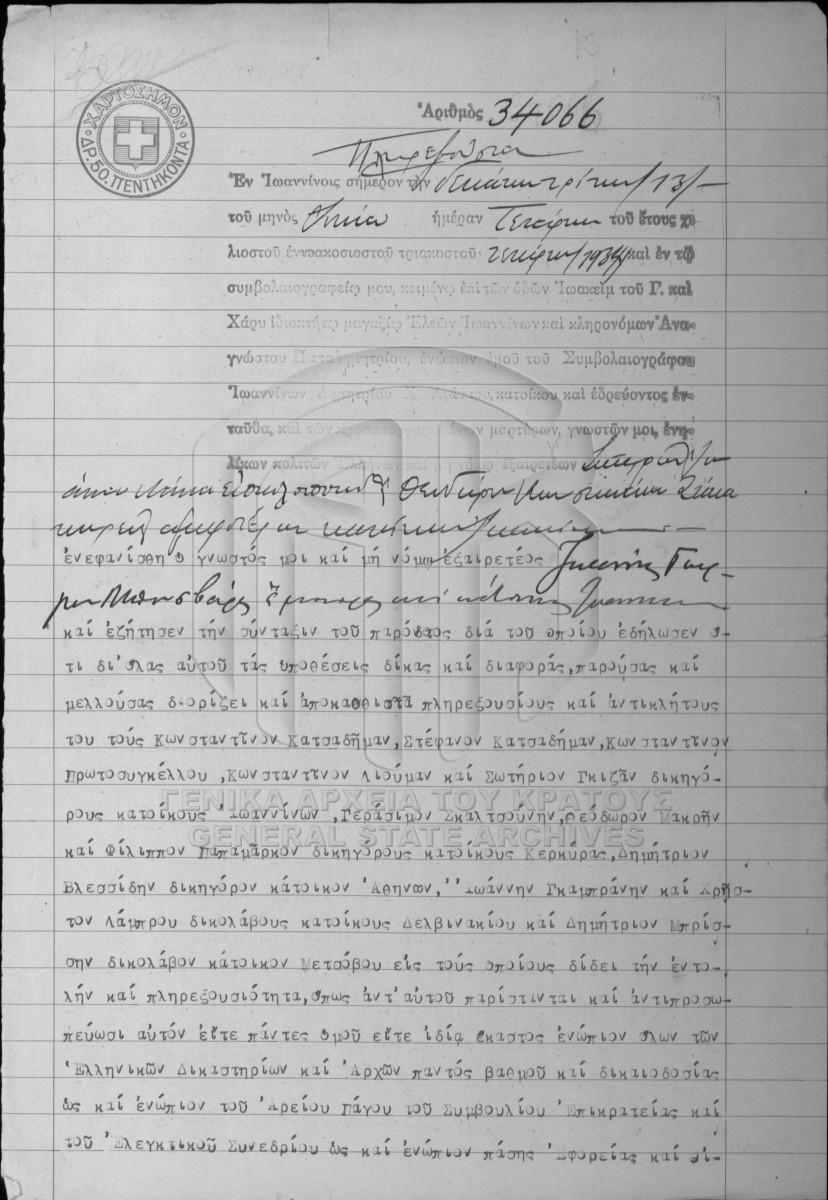 ΧΑΡΤΟΣΗΜΟΝ
ΔΡ. 50. ΠΕΝΤΗΚΟΝΤΑ
Ἀριθμὸς 34066
Πληρεξούσιον
Ἐν Ἰωαννίνοις σήμερον τὴν δεκάτην τρίτην /13/
τοῦ μηνὸς ἡμέραν Τετάρτην τοῦ ἔτους χι-
λιοστοῦ ἐννεακοσιοστοῦ τριακοστοῦ τετάρτου /1934/ καὶ ἐν τῷ
συμβολαιογραφείῳ μου, κειμένῳ ἐπὶ τῶν ὁδῶν Ἰωακεὶμ τοῦ Γ. καὶ
Χάρυ ἰδιοκτήτῳ μαγαζίῳ Ἐλεῶν Ἰωαννίνων καὶ κληρονόμων Ἀνα-
γνώστου Παπαδημητρίου, ἐνώπιον ἐμοῦ τοῦ Συμβολαιογράφου
Ἰωαννίνων Δημητρίου κατοίκου καὶ ἑδρεύοντος ἐν-
ταῦθα, καὶ τῶν μαρτύρων, γνωστῶν μοι, ἐνη-
λίκων πολιτῶν Ἑλλήνων καὶ μὴ νόμῳ ἐξαιρετέων
ἐνεφανίσθη ὁ γνωστός μοι καί μή νόμῳ ἐξαιρετέος Ἰωάννης
ἔμπορος καὶ κάτοικος
καί ἐζήτησεν τήν σύνταξιν τοῦ παρόντος διά τοῦ ὁποίου ἐδήλωσεν ὅ-
τι δι'ὅλας αὐτοῦ τάς ὑποθέσεις δίκας καί διαφοράς,παρούσας καί
μελλούσας διορίζει καί ἀποκαθιστᾶ πληρεξουσίους καί ἀντικλήτους
του τούς Κωνσταντῖνον Κατσαδῆμαν,Στέφανον Κατσαδήμαν,Κωνσταντῖνον
Πρωτοσυγκέλλου,Κωνσταντῖνον Λιούμαν καί Σωτήριον Γκιζᾶν δικηγό-
ρους κατοίκους Ἰωαννίνων,Γεράσιμον Σκαλτσούνην,Θεόδωρον Μακρῆν
καί Φίλιππον Παπαμᾶρκον δικηγόρους κατοίκους Κερκύρας,Δημήτριον
Βλεσσίδην δικηγόρον κάτοικον Ἀθηνων,Ἰωάννην Γκαμπράνην καί Χρῆσ-
τον Λάμπρου δικολάβους κατοίκους Δελβινακίου καί Δημήτριον Μπρίσ-
σην δικολάβον κάτοικον Μετσόβου εἰς τούς ὁποίους δίδει τήν ἐντο-
λήν καί πληρεξουσιότητα,ὅπως ἀντ'αὐτοῦ παρίστινται καί ἀντιπροσω-
πεύωσι αὐτόν εἴτε πάντες ὁμοῦ εἴτε ἰδίᾳ ἕκαστος ἐνώπιον ὅλων τῶν
Ἑλληνικῶν Δικαστηρίων καί Ἀρχῶν παντός βαθμοῦ καί δικαιοδοσίας
ὡς καί ἐνώπιον τοῦ Ἀρείου Πάγου τοῦ Συμβουλίου Ἐπικρατείας καί
τοῦ Ἐλεγκτικοῦ Συνεδρίου ὡς καί ἐνώπιον πάσης Ἐφορείας καί Οἰ-
ΓΕΝΙΚΑ ΑΡΧΕΙΑ ΤΟΥ ΚΡΑΤΟΥΣ
GENERAL STATE ARCHIVES